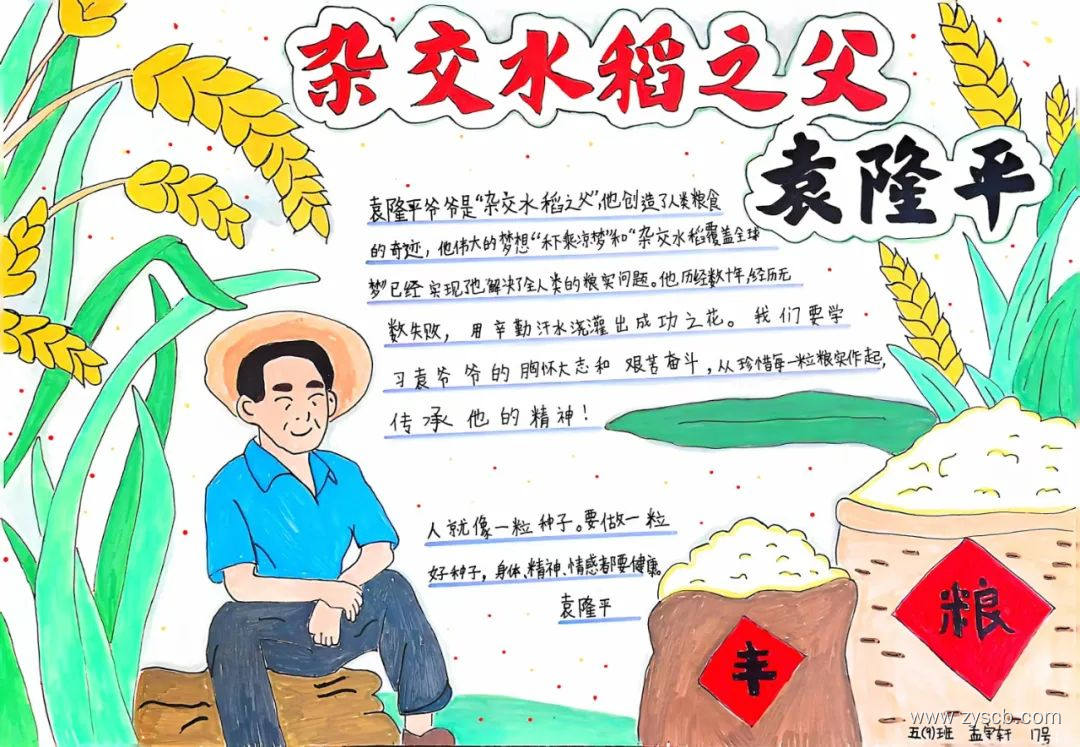 杂交水稻之父
袁隆平
袁隆平爷爷是“杂交水稻之父”,他创造了人类粮食
的奇迹,他伟大的梦想“禾下乘凉梦”和“杂交水稻覆盖全球
梦”已经实现了他解决了全人类的粮实问题。他历经数十年,经历无
数失败,用辛勤汗水浇灌出成功之花。我们要学
习袁爷爷的胸怀大志和艰苦奋斗,从珍惜每一粒粮实作起,
传承他的精神!
人就像一粒种子。要做一粒
好种子,身体、精神、情感都要健康。
袁隆平
丰
粮
www.zyscb.com
五(9)班 孟宇轩 17号